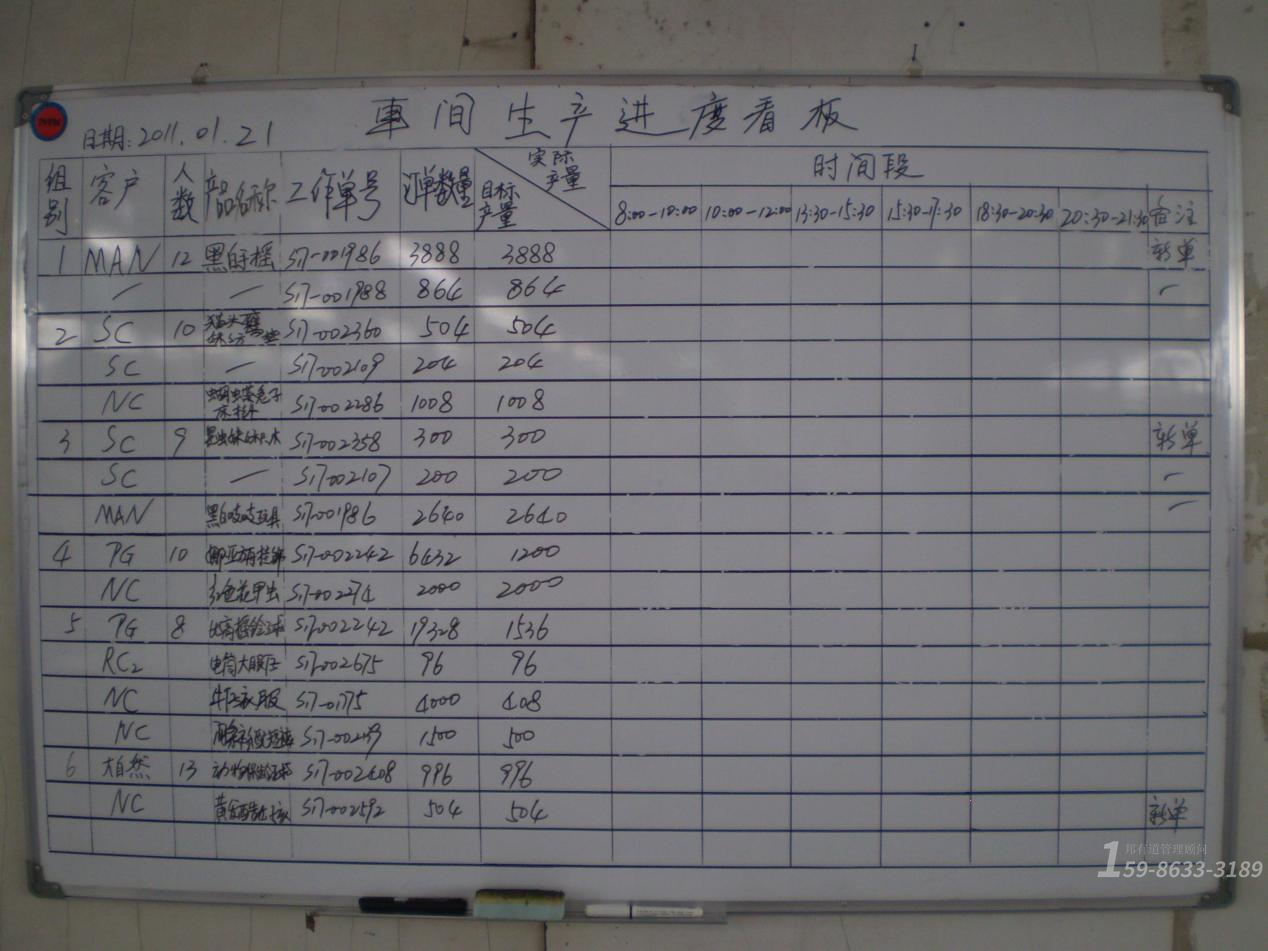 車间生产进度看板
日期:2011.01.21
组别 客户 人数 产品名称 工作单号 订单数量 实际产量 目标产量 时间段
8:00-10:00 10:00-12:00 13:30-15:30 15:30-17:30 18:30-20:30 20:30-21:30 备注
1 MAN 12 黑白手摇 S17-001986 3888 3888 新单
一 一 S17-001988 864 864 一
2 SC 10 猫头鹰 S17-002360 504 504
SC 一 S17-002109 204 204
NC 蝴蝶兔子床挂 S17-002286 1008 1008
3 SC 9 昆虫 S17-002358 300 300 新单
SC 一 S17-002107 200 200 一
MAN 黑白吱吱玩具 S17-001986 2640 2640 一
4 PG 10 S17-002242 6432 1200
NC 红色花甲虫 S17-002274 2000 2000
5 PG 8 S17-002242 19328 1536
RC2 S17-002675 96 96
NC 衣服 S17-01775 4000 408
NC 1500 500
6 大自然 13 动物保龄球 S17-002408 996 996
NC S17-002592 504 504 新单
邦有道管理顾问
159-8633-3189